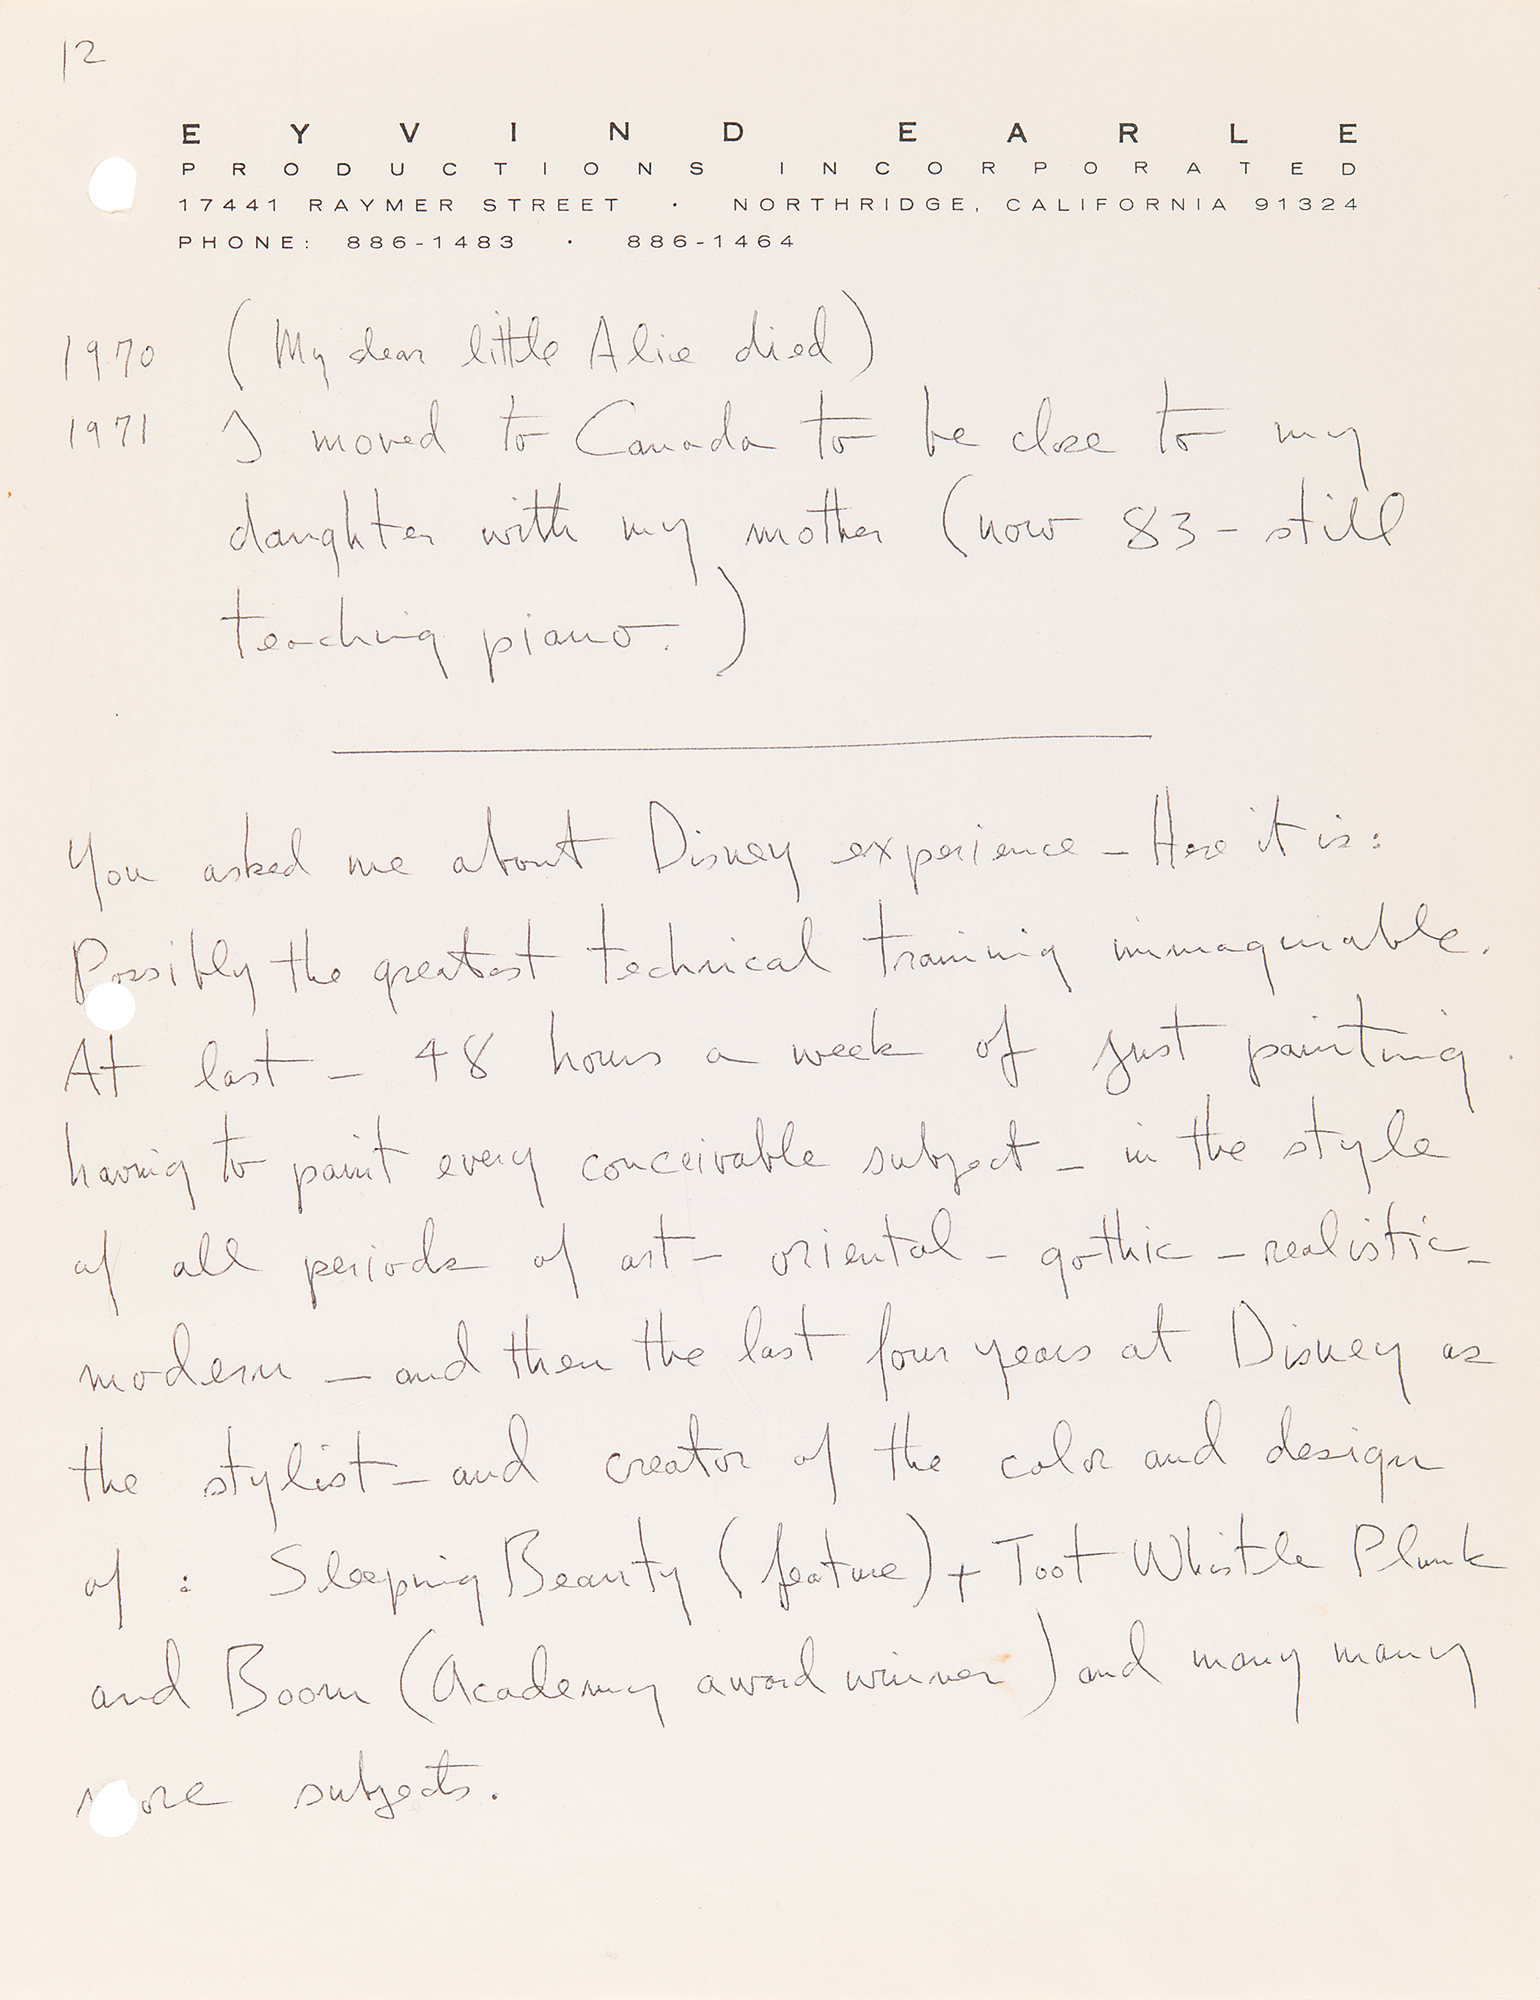 12
EYVIND EARLE
PRODUCTIONS INCORPORATED
17441 RAYMER STREET · NORTHRIDGE, CALIFORNIA 91324
PHONE: 886-1483 · 886-1464
1970 (My dear little Alice died)
1971 I moved to Canada to be close to my
daughter with my mother (now 83 - still
teaching piano.)
You asked me about Disney experience - Here it is:
Possibly the greatest technical training immaginable.
At last - 48 hours a week of just painting
having to paint every conceivable subject - in the style
of all periods of art - oriental - gothic - realistic -
modern - and then the last four years at Disney as
the stylist - and creator of the color and design
of : Sleeping Beauty (feature) + Toot Whistle Plunk
and Boom (Academy award winner) and many many
more subjects.